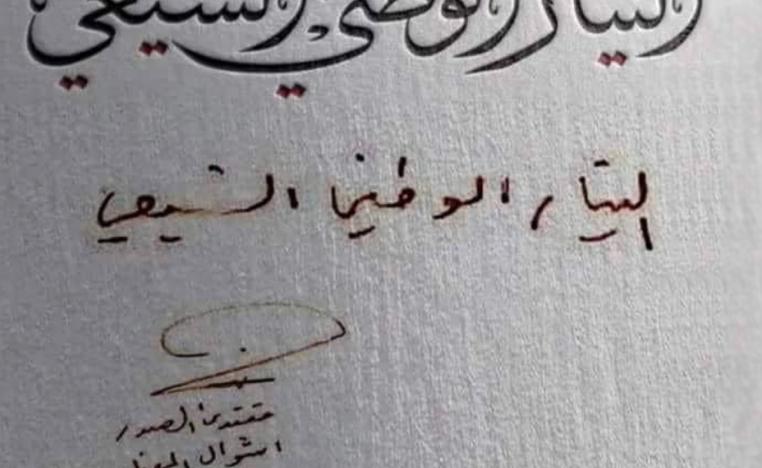 التيار الوطني الشيعي
التيار الوطني الشيعي
مقتدى الصدر